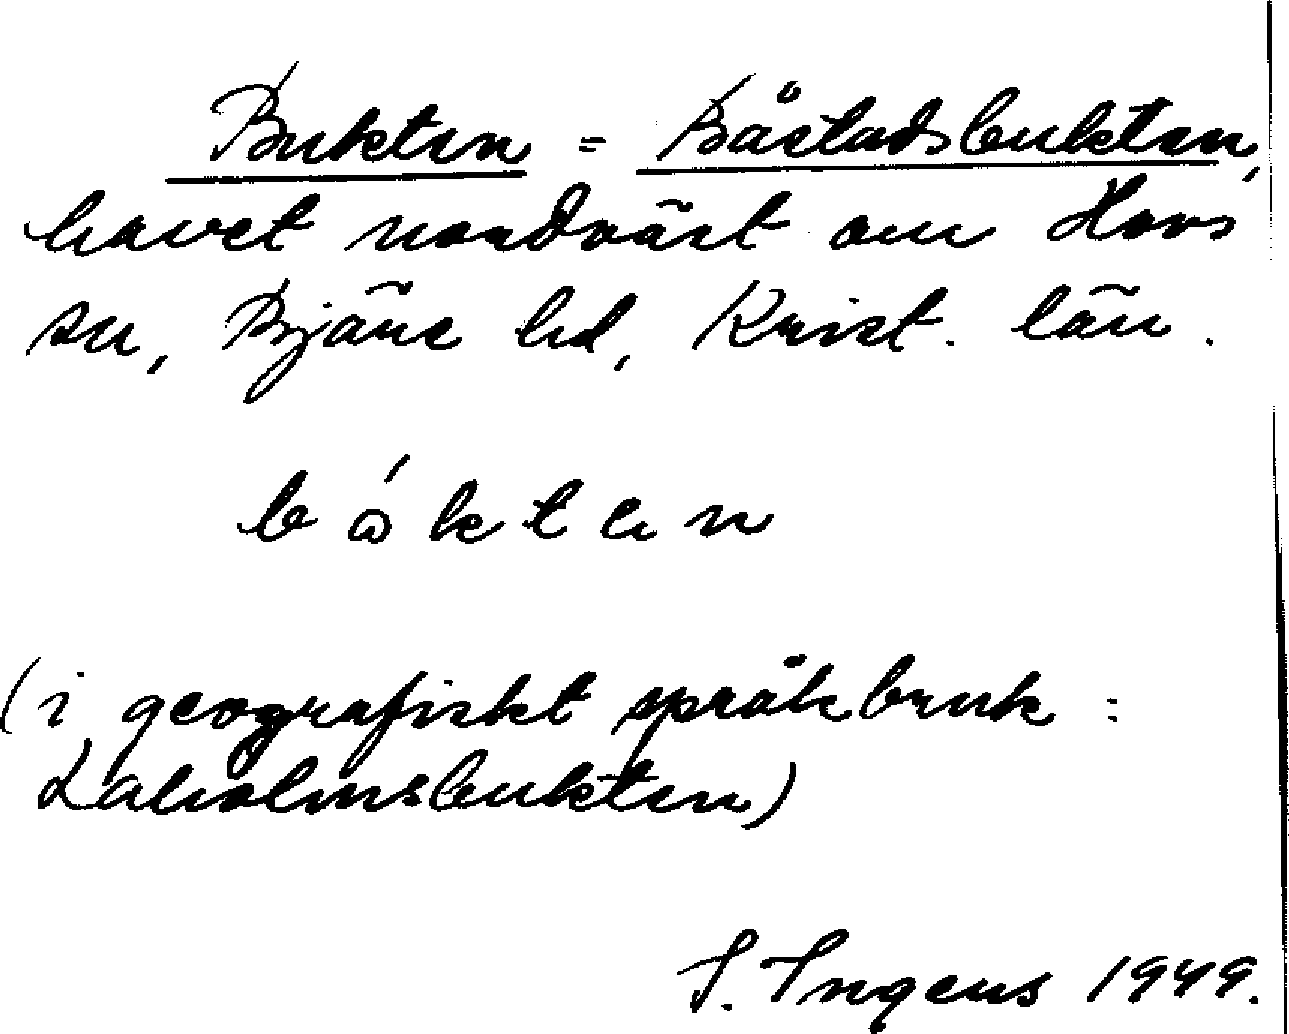 Bukten = Båstadsbukten,
havet nordväst om Hovs
sn, Bjäre hd, Krist. län.
bώkten
(i geografiskt språkbruk:
Laholmsbukten)
I. Ingers 1949.